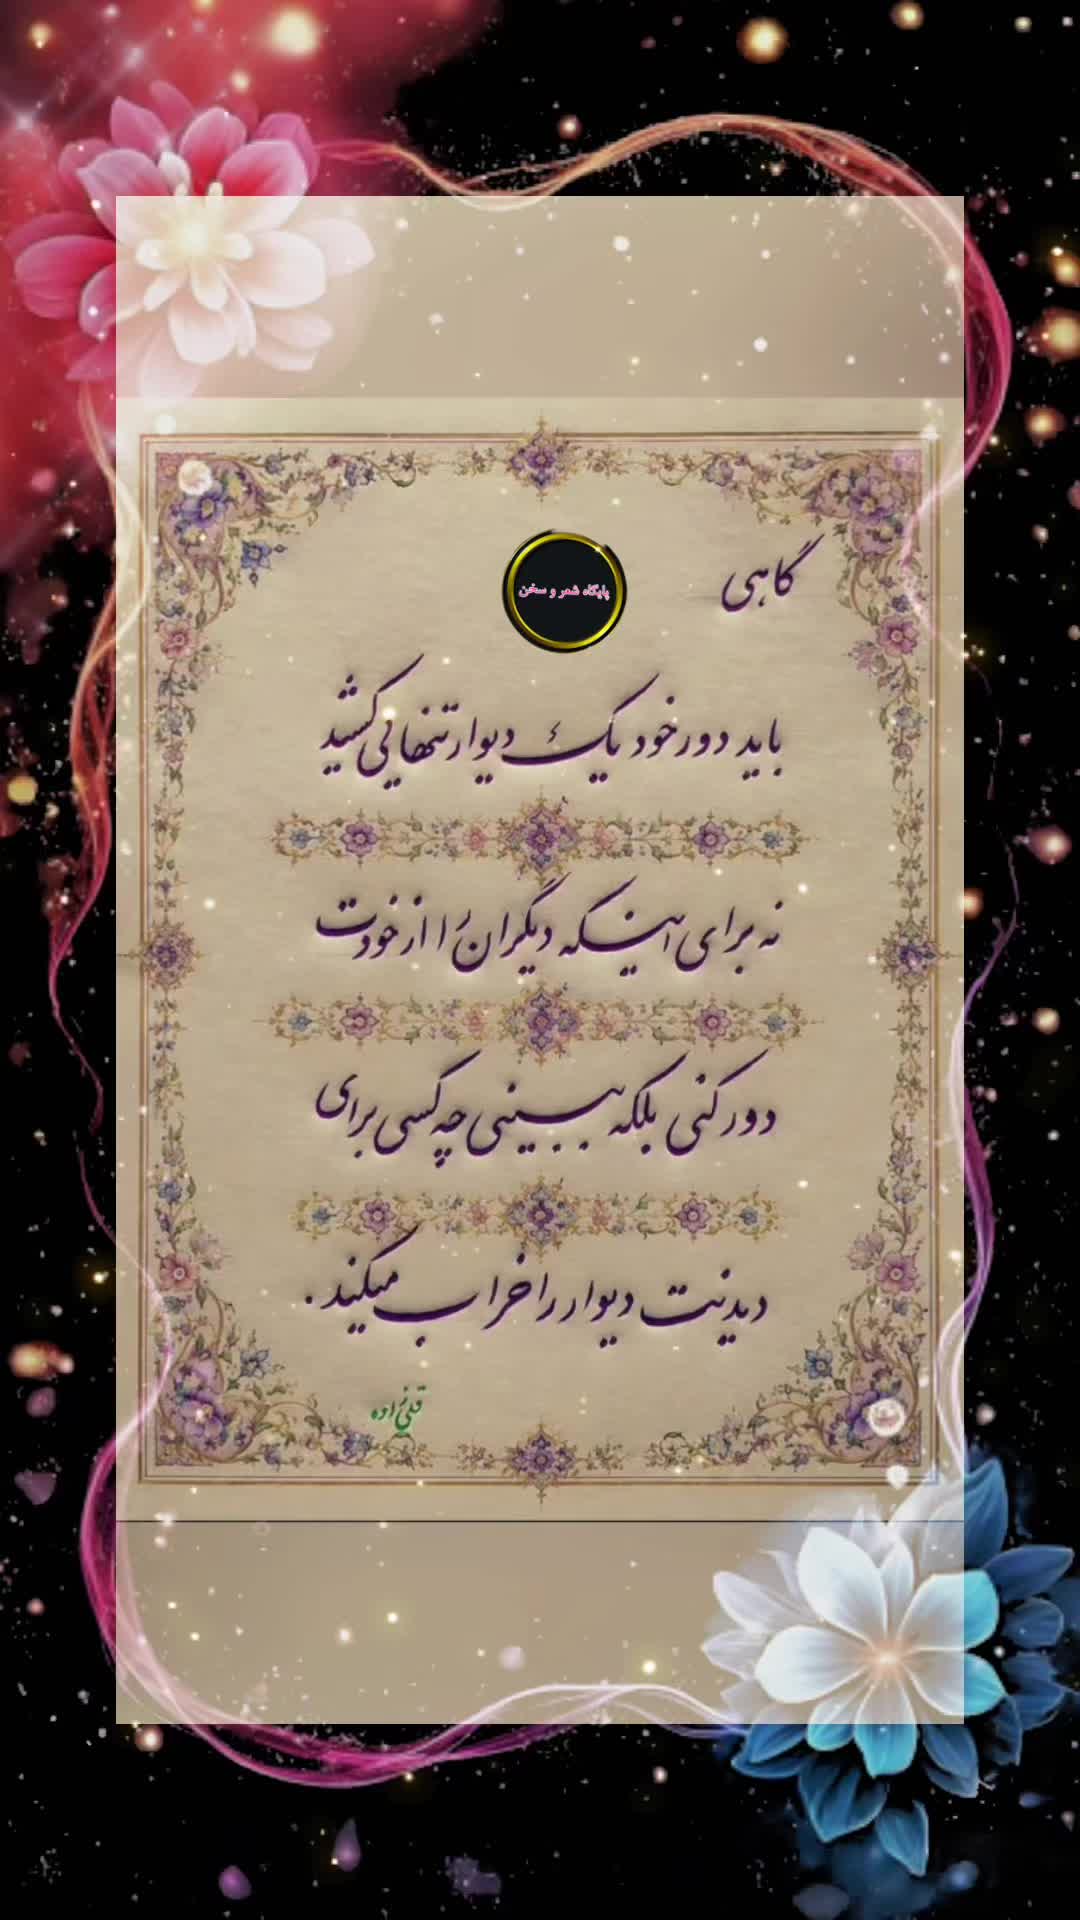 گاهی
پایگاه شعر و سخن
باید دور خود یک دیوار تنهائی کشید
نه برای اینکه دیگران را از خودت
دور کنی بلکه ببینی چه کسی برای
دیدنت دیوار را خراب میکند .
قلی‌زاده